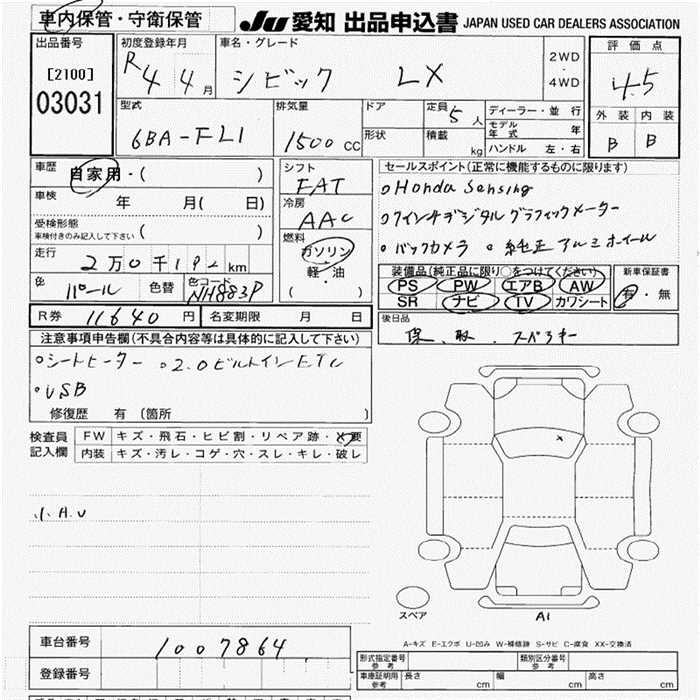 車内保管・守衛保管
JU 愛知 出品申込書 JAPAN USED CAR DEALERS ASSOCIATION
出品番号
[2100]
03031
初度登録年月
R4 4月
車名・グレード
シビック LX
2WD
・
4WD
評価点
4.5
外装 内装
B B
型式
6BA-FL1
排気量
1500 CC
ドア
形状
定員 5人
積載 kg
ディーラー・並行
モデル年式 年
ハンドル 左・右
車歴
自家用・( )
車検 年 月( 日)
受検形態
車検付きのみ記入して下さい ( )
走行
2万0千192km
色 パール 色替 色コード NH883P
シフト
FAT
冷房
AAC
燃料
ガソリン
・
軽・油
( )
セールスポイント(正常に機能するものに限ります)
○Honda Sensing
○7インチデジタルグラフィックメーター
○バックカメラ ○純正アルミホイール
装備品(純正品に限り○をつけてください)
PS PW エアB AW
SR ナビ TV カワシート
新車保証書
有・無
R券 11640円 名変期限 月 日
後日品
保、取、スペアキー
注意事項申告欄(不具合内容等は具体的に記入して下さい)
○シートヒーター ○2.0ビルトインETC
・USB
修復歴 有 (箇所 )
検査員
記入欄
FW キズ・飛石・ヒビ割・リペア跡・X要
内装 キズ・汚レ・コゲ・穴・スレ・キレ・破レ
小A.U
スペア
A1
A-キズ E-エクボ U-凹み W-補修跡 S-サビ C-腐食 XX-交換済
車台番号 1007864
登録番号
形式指定番号
参考
類別区分番号
参考
車庫証明用
参考
長さ cm 幅 cm 高さ cm